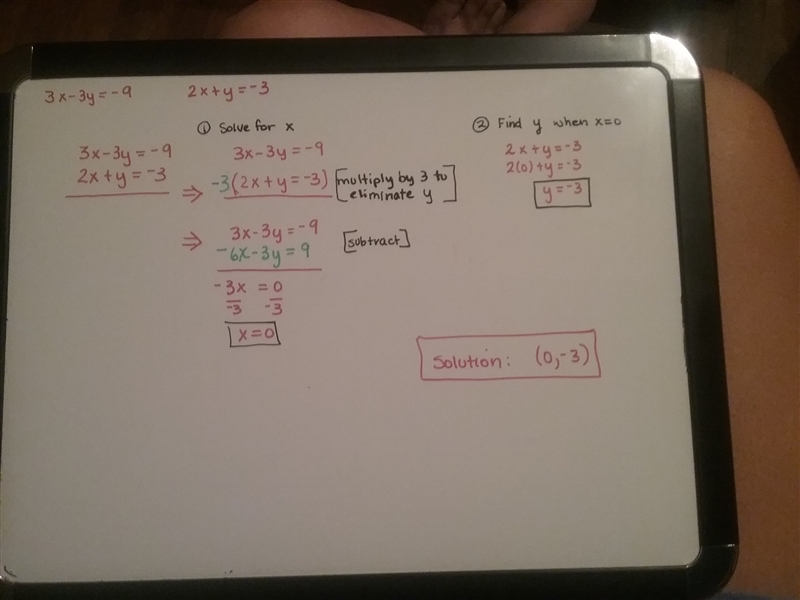 3x-3y=-9 2x+y=-3
① Solve for x
3x-3y=-9
2x+y=-3
⇒
3x-3y=-9
-3(2x+y=-3)
[multiply by 3 to
eliminate y]
⇒
3x-3y=-9
-6x-3y=9
[subtract]
-3x=0
-3 -3
x=0
② Find y when x=0
2x+y=-3
2(0)+y=-3
y=-3
Solution: (0,-3)